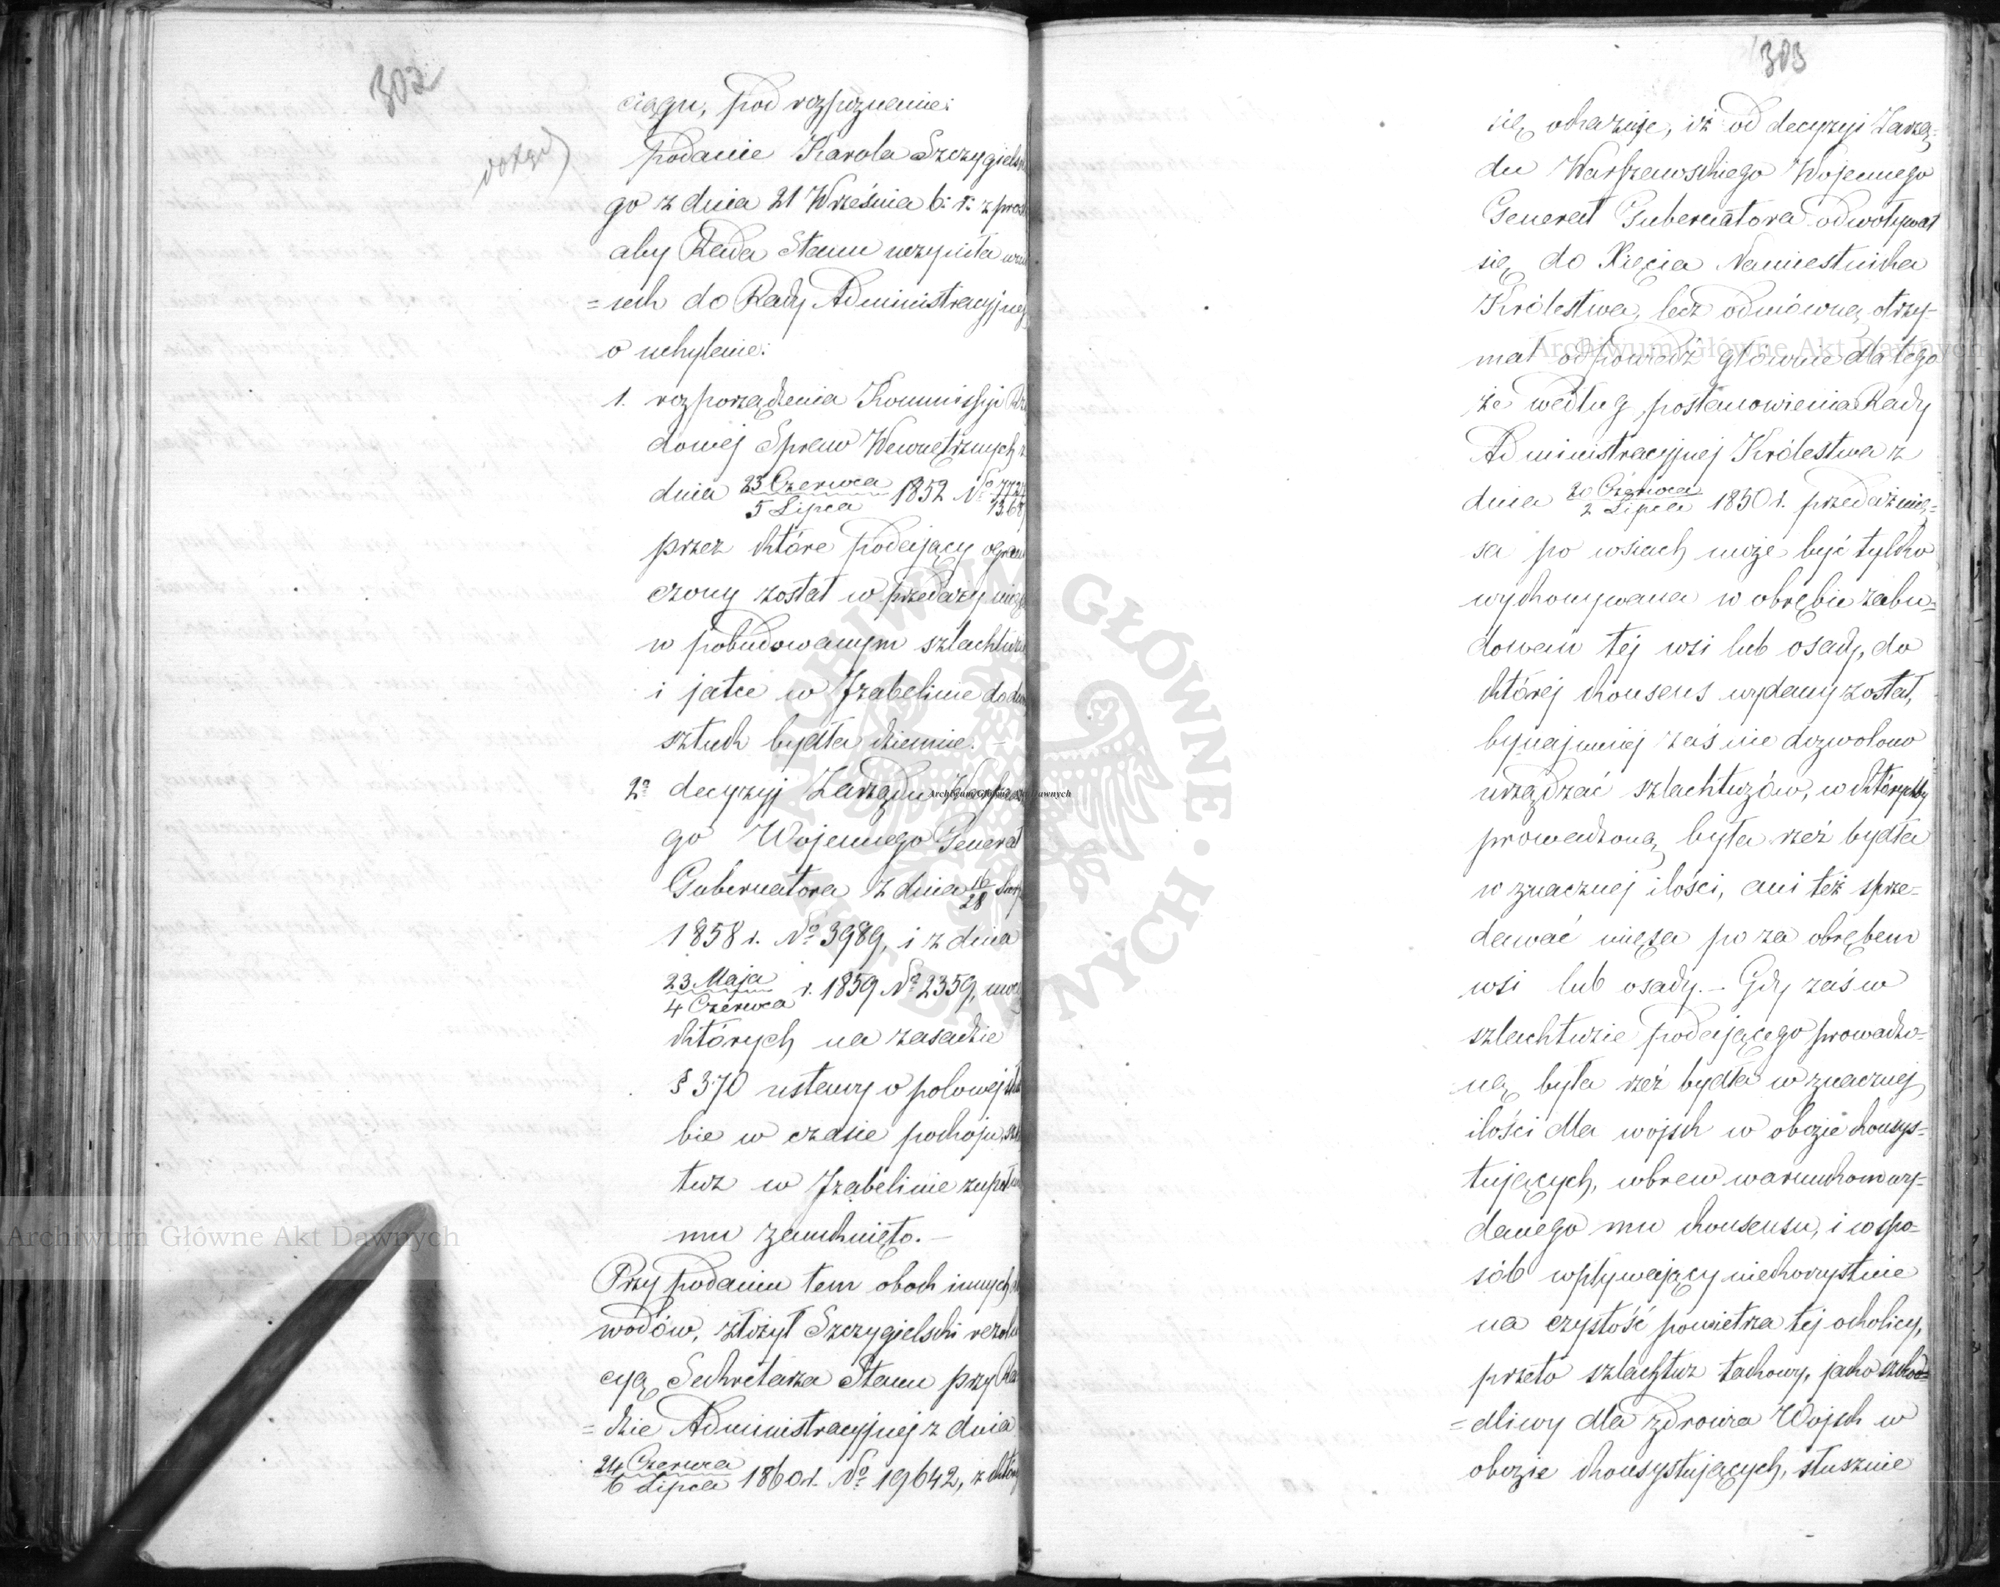 302
ciągu, pod rozpoznanie:
podanie Karola Szczygielsk
go z dnia 21 Września b: r: z proś
aby Rada Stanu uczyniła wnio
=sek do Rady Administracyjnej
o uchylenie:
1. rozporządzenia Kommissyi Rzą
dowej Spraw Wewnętrznych z
dnia 23 Czerwca / 5 Lipca 1852 No
przez które podający ograni
czony został w przedaży mięsa
w pobudowanym szlachtuzie
i jatce w Izabelinie do dwóch
sztuk bydła dziennie. –
2o decyzyj Zarządu Warszaws
go Wojennego Generał
Gubernatora z dnia 16/28 Sierp
1858 r. No 3989, i z dnia
23 Maja / 4 Czerwca r. 1859 No 2359, mocą
których na zasadzie
§ 370 ustawy o polowej słu
bie w czasie pokoju, szl
tuz w Izabelinie zupełn
mu zamknięto. –
Przy podaniu tem obok innych do
wodów, złożył Szczygielski rezolu
cyą Sekretarza Stanu przy Ra
=dzie Administracyjnej z dnia
24 Czerwca / 6 Lipca 1860 r. No 19642, z której
303
się okazuje, iż od decyzyi Zarzą-
du Warszawskiego Wojennego
Generał Gubernatora odwoływał
się do Xięcia Namiestnika
Królestwa, lecz odmówną otrzy-
mał odpowiedź głównie dla tego
że według postanowienia Rady
Administracyjnej Królestwa z
dnia 20 Czerwca / 2 Lipca 1850 r. przedaż mię-
sa po wsiach może być tylko
wykonywana w obrębie zabu-
dowań tej wsi lub osady, do
której konsens wydany został,
bynajmniej zaś nie dozwolono
urządzać szlachtuzów, w którychby
prowadzoną była rzeź bydła
w znacznej ilości, ani też sprze-
dawać mięsa po za obrębem
wsi lub osady. – Gdy zaś w
szlachtuzie podającego prowadzo-
ną była rzeź bydła w znacznej
ilości dla wojsk w obozie konsys-
tujących, wbrew warunkom wy-
danego mu konsensu, i w spo-
sób wpływający niekorzystnie
na czystość powietrza tej okolicy,
przeto szlachtuz takowy, jako szkod=
=dliwy dla zdrowia Wojsk w
obozie konsystujących, słusznie
Archiwum Główne Akt Dawnych
Archiwum Główne Akt Dawnych
Archiwum Główne Akt Dawnych
ARCHIWUM GŁÓWNE AKT DAWNYCH